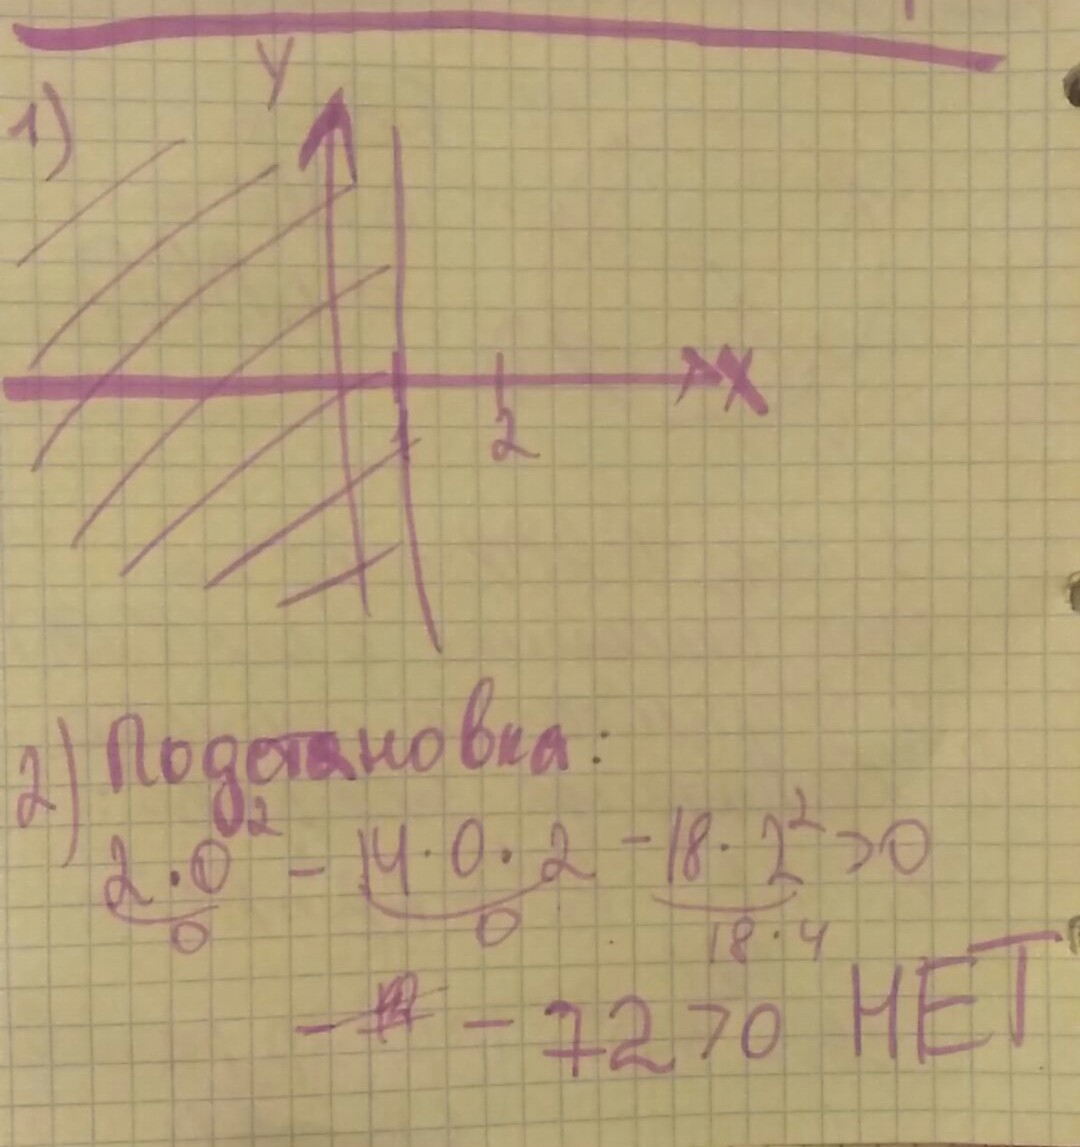 1)
У
X
2
2) Подстановка:
2·0² - 14·0·2 - 18·2² >0
0 0 18·4
- - 72>0 НЕТ